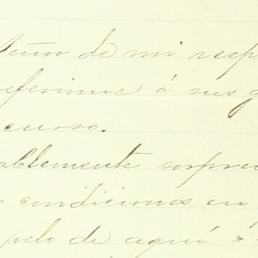 Señor de mi resp
referirme á sus g
curso.
ablemente sorpre
s condiciones en
pelo de aquí